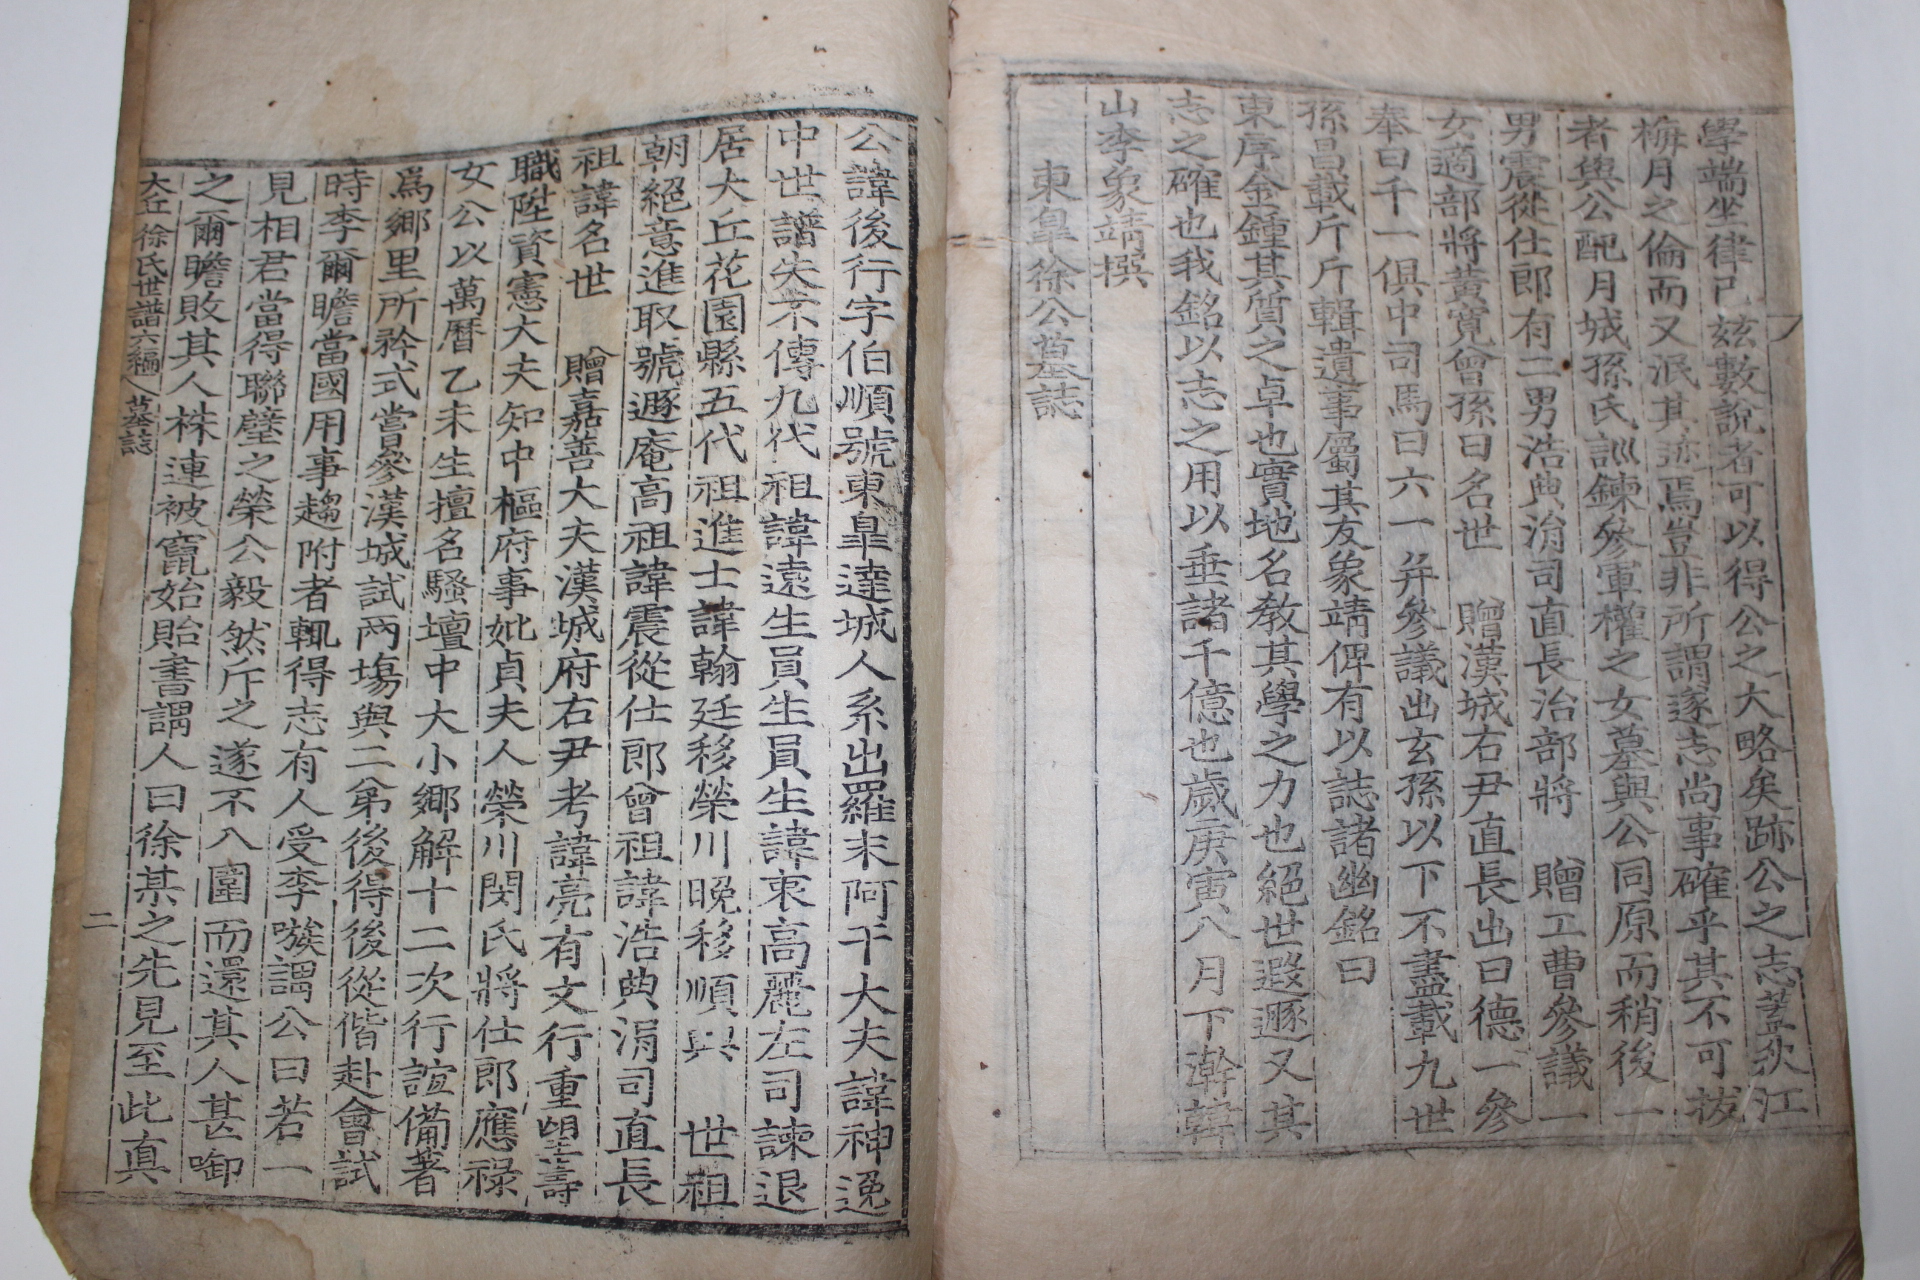 學端坐律己玆數說者可以得公之大略矣跡公之志蓋秋江
梅月之倫而又泯其迹焉豈非所謂遂志尚事確乎其不可拔
者與公配月城孫氏訓鍊參軍權之女墓與公同原而稍後一
男震從仕郎有二男浩典涓司直長治部將 贈工曹參議一
女適部將黃寬曾孫曰名世 贈漢城右尹直長出曰德一參
奉曰千一俱中司馬曰六一幷參議出玄孫以下不盡載九世
孫昌載斤斤輯遺事屬其友象靖俾有以誌諸幽銘曰
東序金鍾其質之卓也實地名敎其學之力也絕世遐遯又其
志之確也我銘以志之用以垂諸千億也歲庚寅八月下澣韓
山李象靖撰
東皐徐公墓誌
公諱後行字伯順號東皐達城人系出羅末阿干大夫諱神逸
中世譜失不傳九代祖諱遠生員生員生諱衷高麗左司諫退
居大丘花園縣五代祖進士諱翰廷移榮川晚移順興 世祖
朝絕意進取號遯庵高祖諱震從仕郎曾祖諱浩典涓司直長
祖諱名世 贈嘉善大夫漢城府右尹考諱亮有文行重望壽
職陞資憲大夫知中樞府事妣貞夫人榮川閔氏將仕郎應祿
女公以萬曆乙未生擅名騷壇中大小鄕解十二次行誼備著
爲鄕里所矜式嘗參漢城試兩場與二弟後得後從偕赴會試
時李爾瞻當國用事趨附者輒得志有人受李嗾謂公曰若一
見相君當得聯璧之榮公毅然斥之遂不入圍而還其人甚啣
之爾瞻敗其人株連被竄始貽書謂人曰徐某之先見至此眞
大丘徐氏世譜六編 墓誌
二